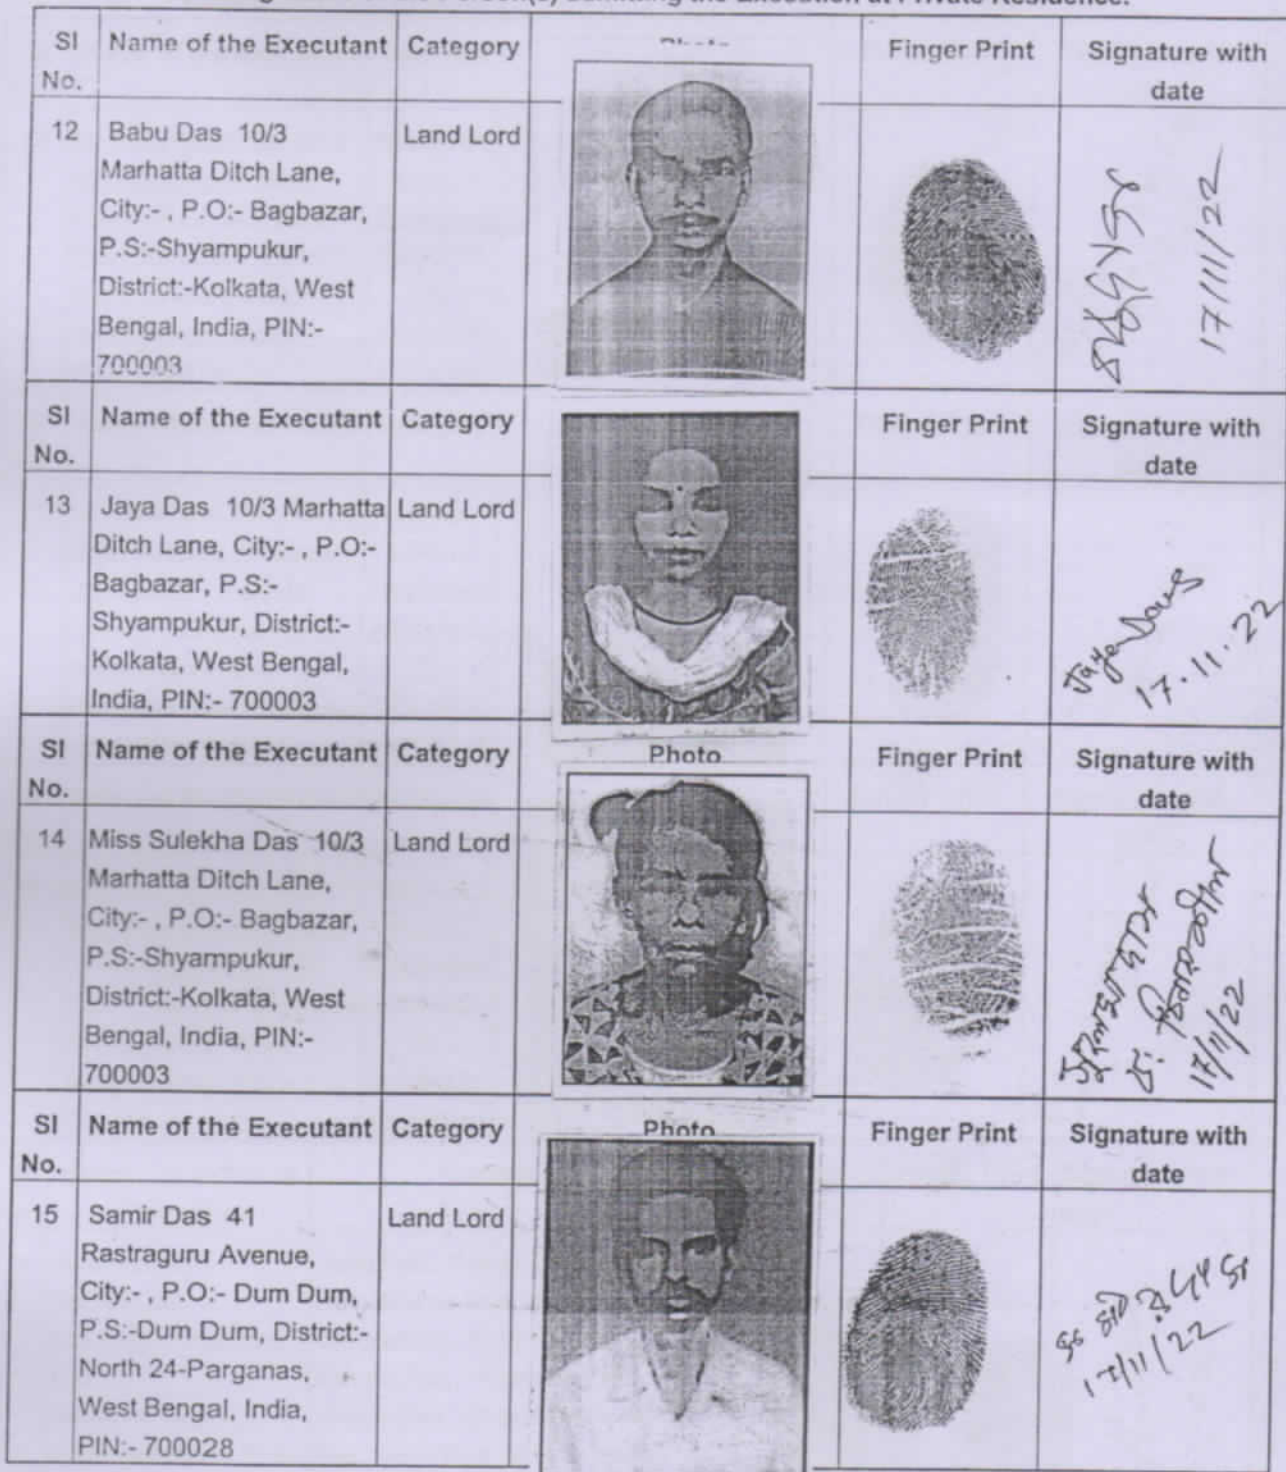 admitting the Execution at Private Residence.
Sl No. Name of the Executant Category Finger Print Signature with date
12 Babu Das 10/3 Land Lord
Marhatta Ditch Lane,
City:- , P.O:- Bagbazar,
P.S:-Shyampukur,
District:-Kolkata, West
Bengal, India, PIN:-
700003
17/11/22
Sl No. Name of the Executant Category Finger Print Signature with date
13 Jaya Das 10/3 Marhatta Land Lord
Ditch Lane, City:- , P.O:-
Bagbazar, P.S:-
Shyampukur, District:-
Kolkata, West Bengal,
India, PIN:- 700003
Jaya Das
17.11.22
Sl No. Name of the Executant Category Photo Finger Print Signature with date
14 Miss Sulekha Das 10/3 Land Lord
Marhatta Ditch Lane,
City:- , P.O:- Bagbazar,
P.S:-Shyampukur,
District:-Kolkata, West
Bengal, India, PIN:-
700003
17/11/22
Sl No. Name of the Executant Category Photo Finger Print Signature with date
15 Samir Das 41 Land Lord
Rastraguru Avenue,
City:- , P.O:- Dum Dum,
P.S:-Dum Dum, District:-
North 24-Parganas,
West Bengal, India,
PIN:- 700028
17/11/22